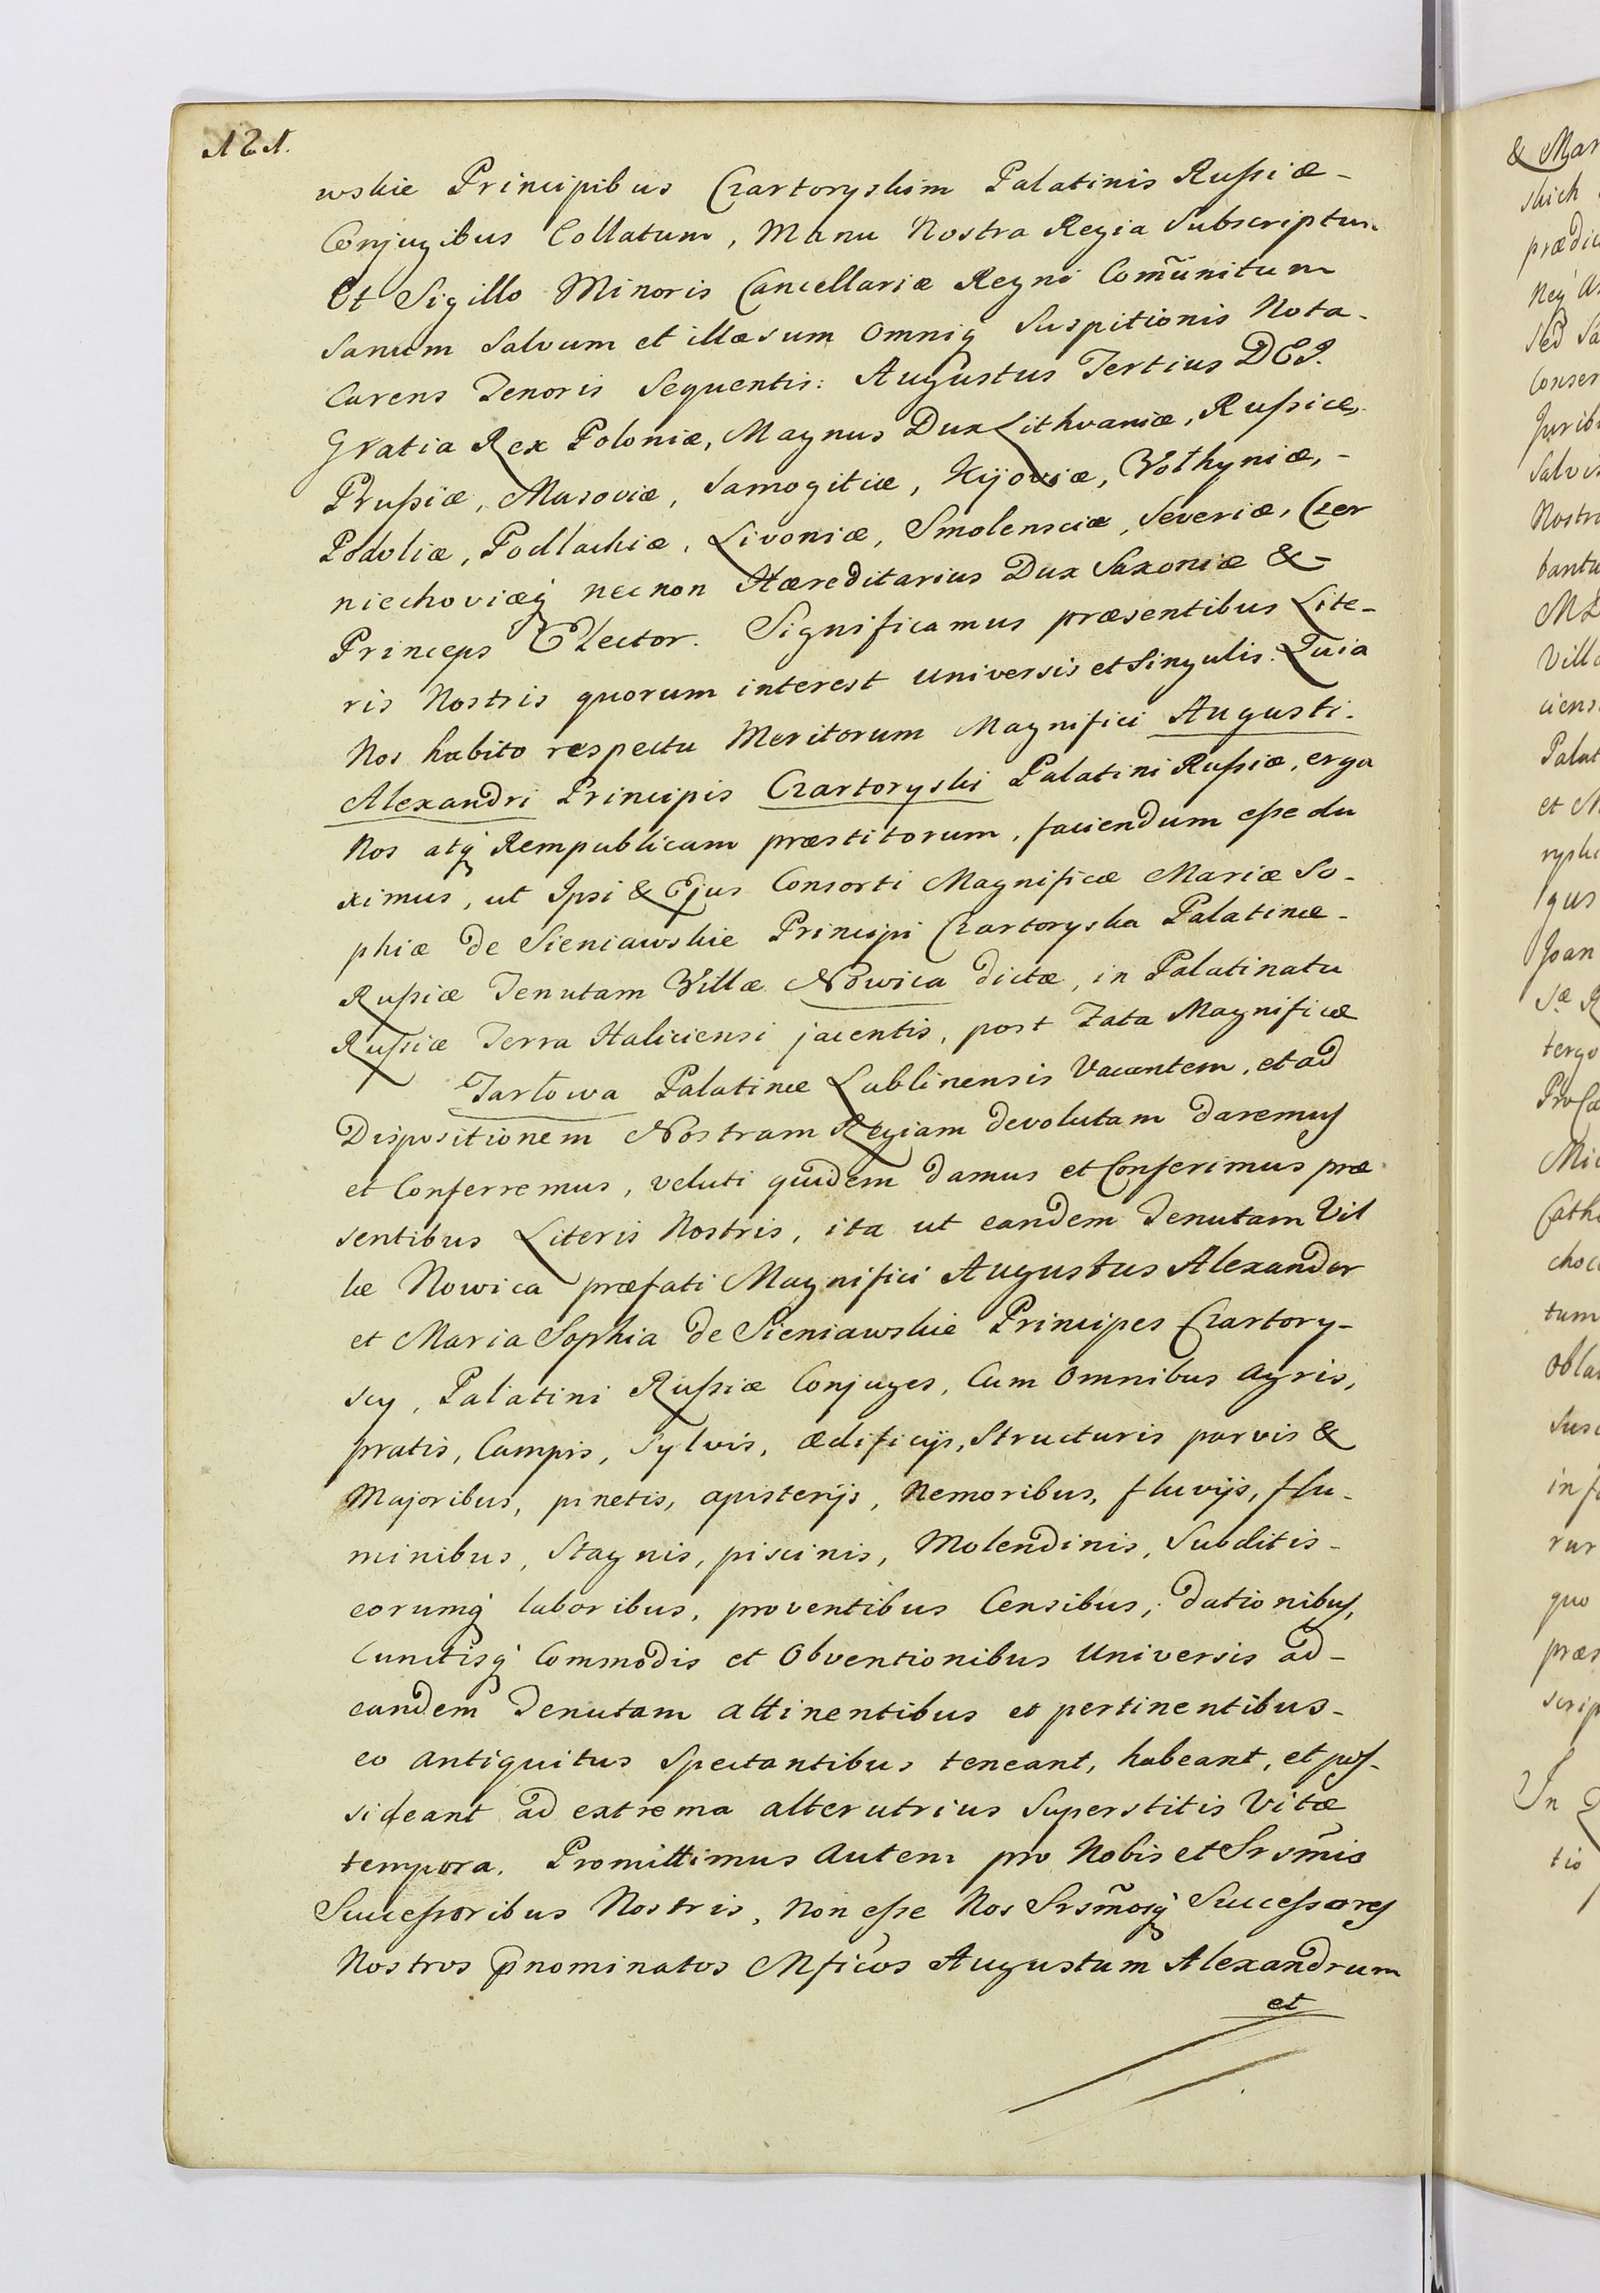 121.
wskie Principibus Czartoryskim Palatinis Russiæ-
Conjugibus Collatum, Manu Nostra Regia Subscriptum
Et Sigillo Minoris Cancellariæ Regni Com̃unitum
Sanum Salvum et illæsum omniq́ Suspitionis Nota-
Carens Tenoris Sequentis: Augustus Tertius DEI.
Gratia Rex Poloniæ, Magnus Dux Lithvaniæ, Russiæ,
Prussiæ, Masoviæ, Samogitiæ, Kijoviæ, Vołhyniæ,-
Podoliæ, Podlachiæ, Livoniæ, Smolensciæ, Severiæ, Czer
niechoviæq́ nec non Hæreditarius Dux Saxoniæ &-
Princeps Elector. Significamus præsentibus Lite-
ris Nostris quorum interest Universis et Singulis. Quia
Nos habito respectu Meritorum Magnifici Augusti-
Alexandri Principis Czartoryski Palatini Russiæ, erga
Nos atq́ Rempublicam præstitorum, faciendum esse du
ximus, ut Ipsi & Ejus Consorti Magnificæ Mariæ So-
phiæ de Sieniawskie Principi Czartoryska Palatinæ-
Russiæ Tenutam Villæ Nowica dictæ, in Palatinatu
Russiæ Terra Haliciensi jacentis, post Fata Magnificæ
Tarłowa Palatinæ Lublinensis Vacantem, et ad
Dispositionem Nostram Regiam devolutam daremus
et Conferremus, veluti quidem damus et Conferimus præ
sentibus Literis Nostris, ita ut eandem Tenutam Vil
læ Nowica præfati Magnifici Augustus Alexander
et Maria Sophia de Sieniawskie Principes Czartory-
scy, Palatini Russiæ Conjuges, Cum Omnibus agris,
pratis, Campis, Sylvis, ædificijs, Structuris parvis &
Majoribus, pinetis, apisterijs, Nemoribus, fluvijs, flu-
minibus, Stagnis, piscinis, Molendinis, Subditis-
eorumq́ laboribus, proventibus Censibus, dationibus,
Cunctisq́ Commodis et Obventionibus Universis ad-
eandem Tenutam attinentibus et pertinentibus-
eo antiquitus Spectantibus teneant, habeant, et pos-
sideant ad extrema alterutrius Superstitis Vitæ
tempora. Promittimus Autem pro Nobis et Srsm̃is
Successoribus Nostris, Non esse Nos Srsm̃osq́ Successores
Nostros p̃nominatos Mficos Augustum Alexandrum
et
& Mar
skich
prædic
Neq́ a
sed sa
Conser
Juribu
Salvis
Nostr
bantu
Villa
ciens
Palat
et M
ryski
Joan
tergo
Cath
choc
tum
Obla
Susc
in f
rur
quo
præs
scrip
In
tio